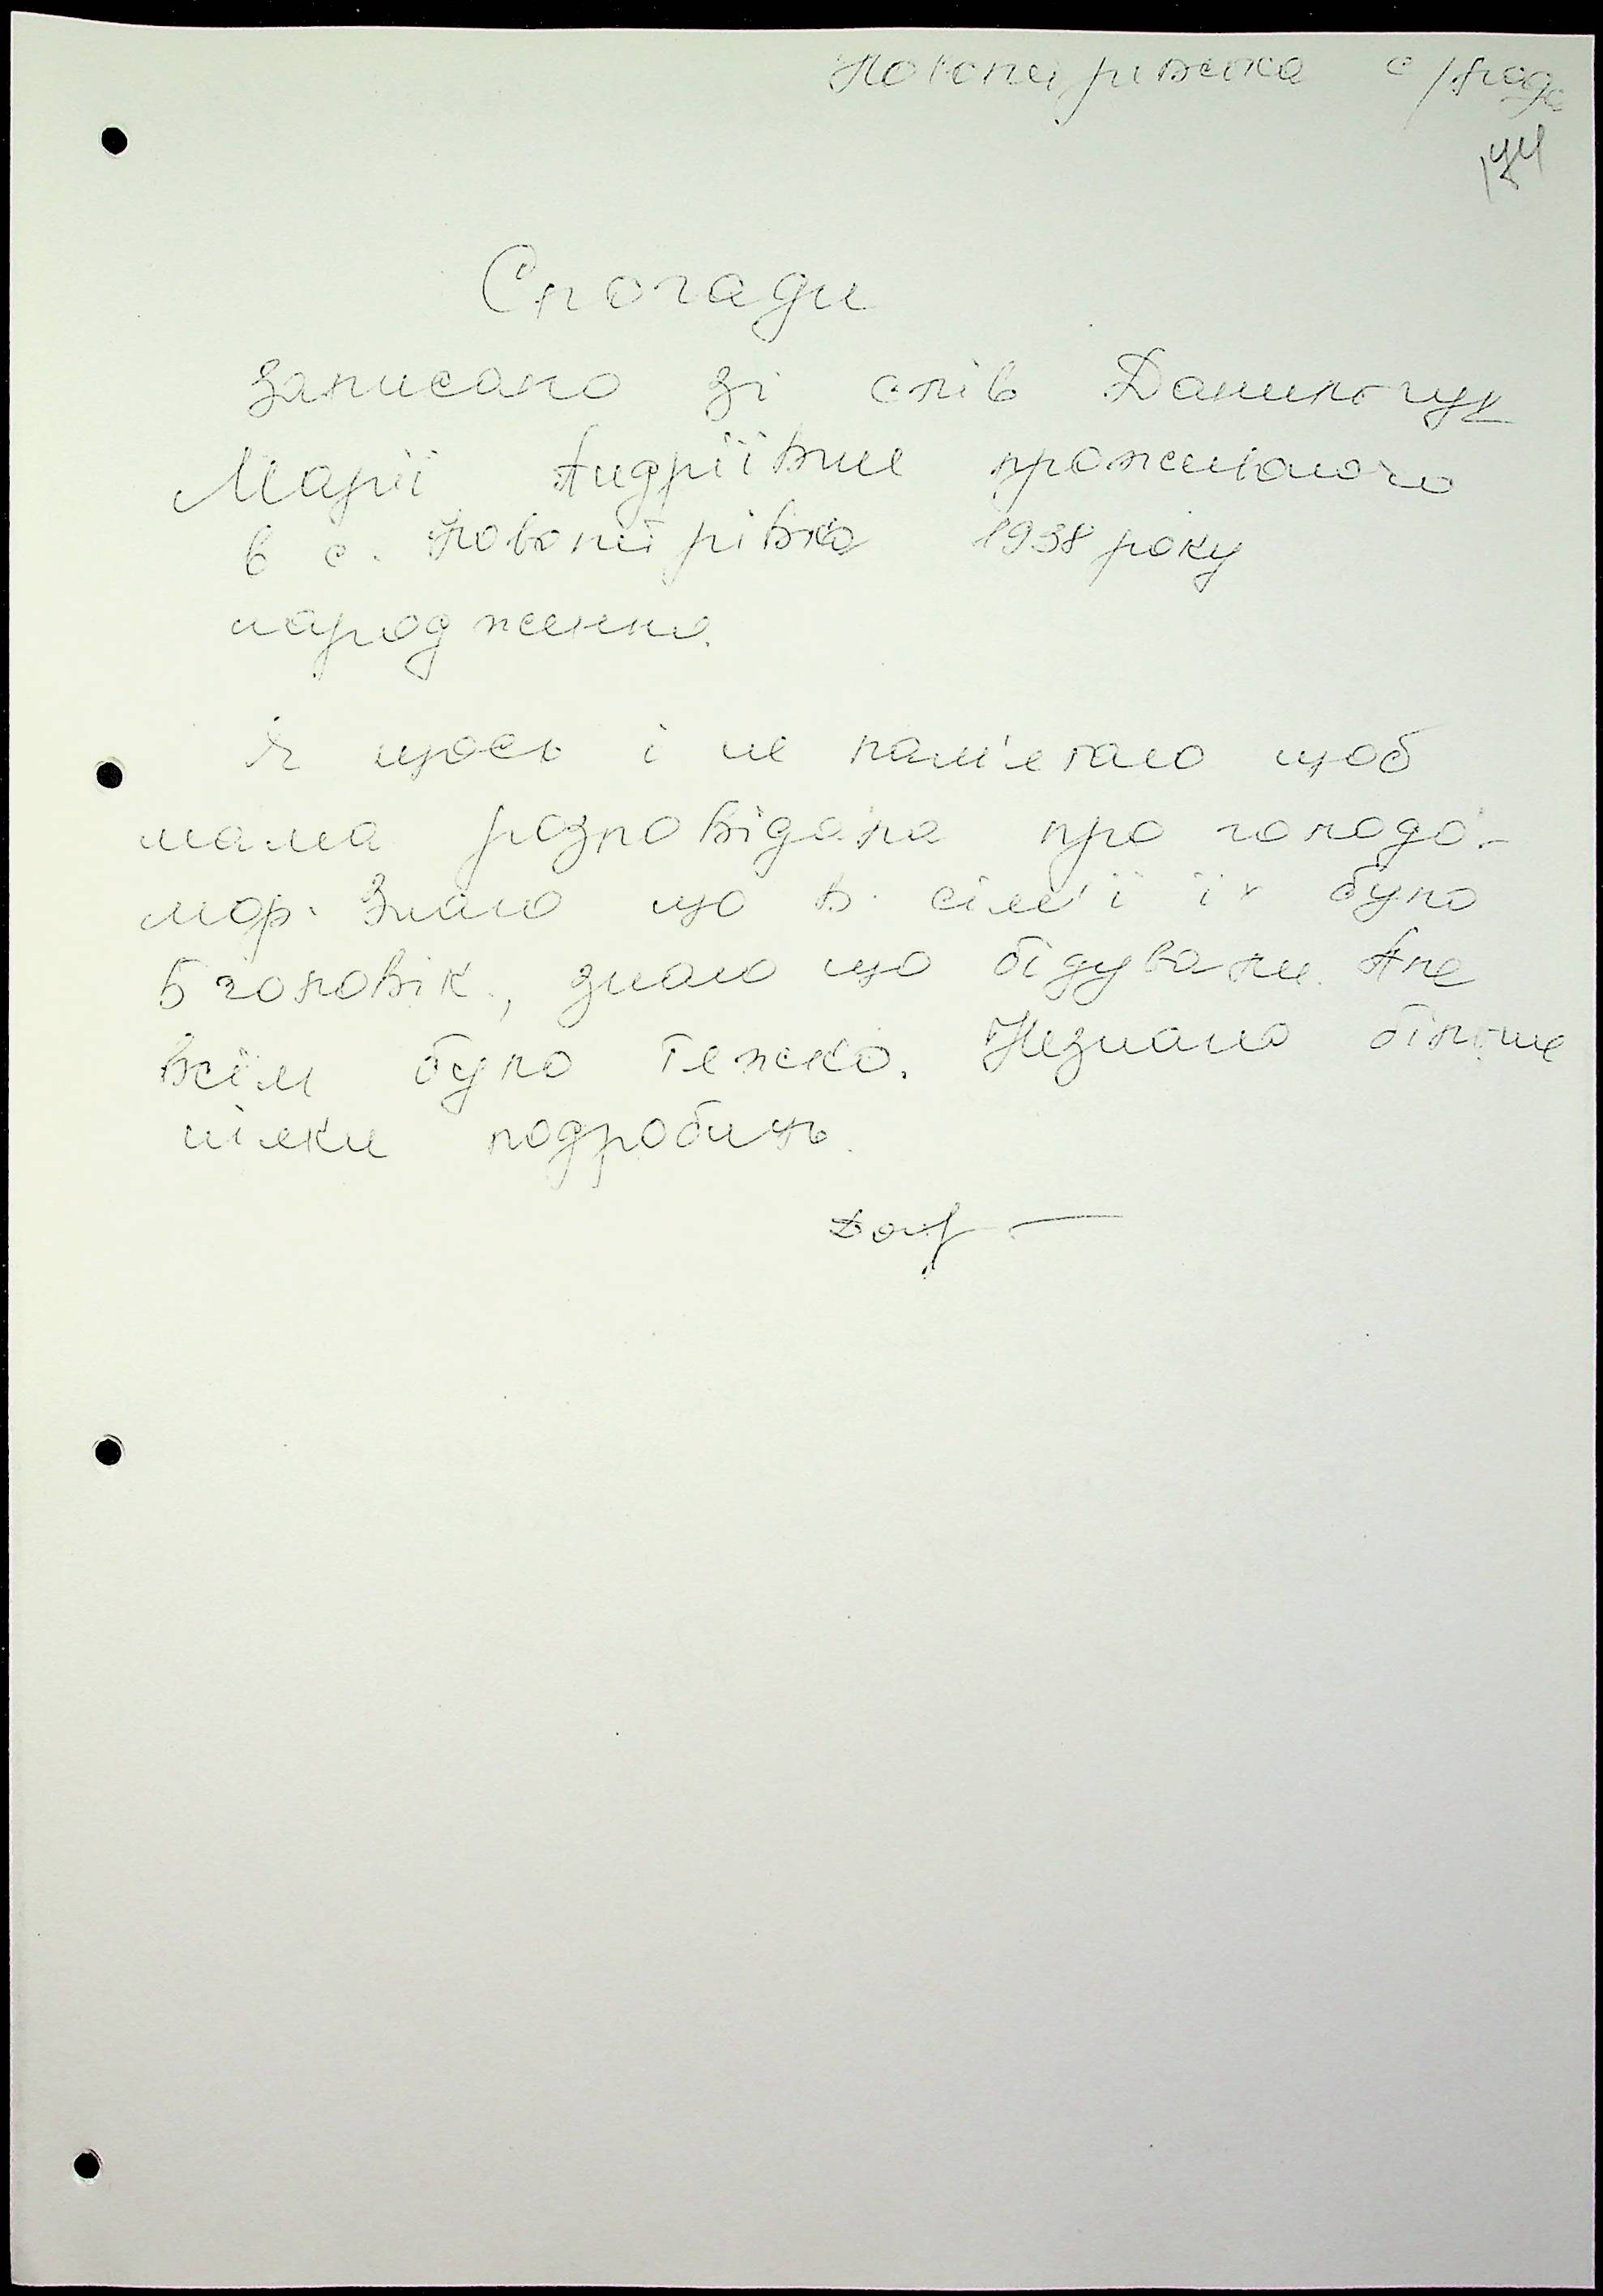 Новопирівська с/рада
174
Спогади
Записано зі слів Данильчук
Марії Андріївне проживаючо
в с. Новопирівка 1938 року
народження.
Я щось і не пам'етаю щоб
мама розповідала про голодо-
мор. Знаю що в сім'ї їх було
5 чоловік, знаю що бідували. Але
всїм було тежко. Незнаю більше
ніяки подробиць.